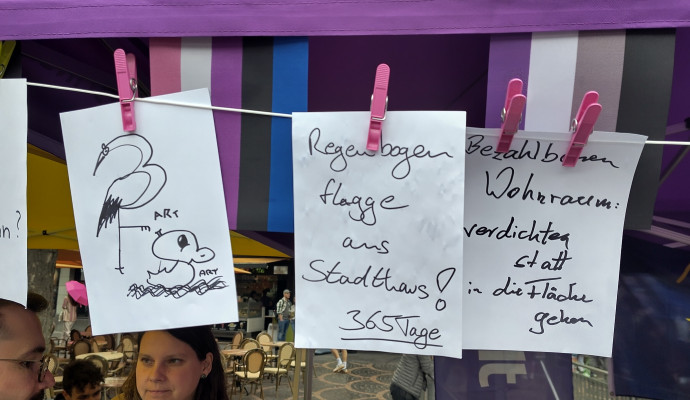 n?
ART
ART
Regenbogen
flagge
aus
Stadthaus!
365 Tage
Bezahlbaren
Wohnraum:
verdichten
statt
in die Fläche
gehen